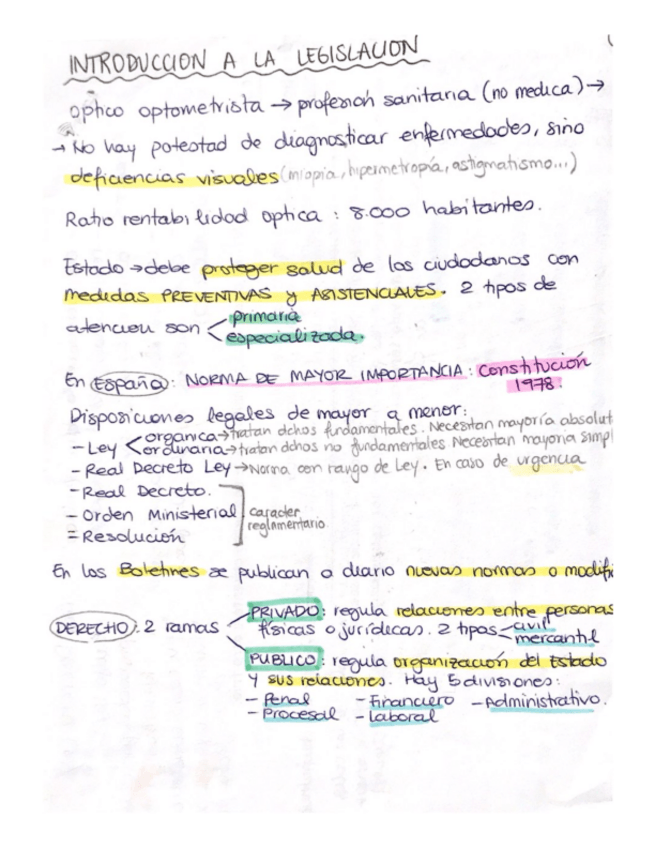 INTRODUCCION A LA LEGISLACION
optico optometrista → profesión sanitaria (no medica) →
→ No hay potestad de diagnosticar enfermedades, sino
deficiencias visuales (miopia, hipermetropía, astigmatismo...)
Ratio rentabilidad optica : 8.000 habitantes.
Estado → debe proteger salud de los ciudadanos con
medidas PREVENTIVAS y ASISTENCIALES. 2 tipos de
atencion son < primaria
especializada.
En España : NORMA DE MAYOR IMPORTANCIA : Constitución
1978.
Disposiciones legales de mayor a menor:
- Ley < organica → tratan dchos fundamentales. Necesitan mayoría absolut
ordinaria → tratan dchos no fundamentales Necesitan mayoria simpl
- Real Decreto Ley → Norma con rango de Ley. En caso de urgencia
- Real Decreto.
- Orden Ministerial
- Resolución
caracter
reglamentario
En los Boletines se publican a diario nuevas normas o modifi
DERECHO : 2 ramas
PRIVADO : regula relaciones entre personas
físicas o jurídicas. 2 tipos - civil
mercantil
PUBLICO : regula organización del Estado
y sus relaciones. Hay 5 divisiones:
- Penal - Financiero - Administrativo.
- Procesal - Laboral